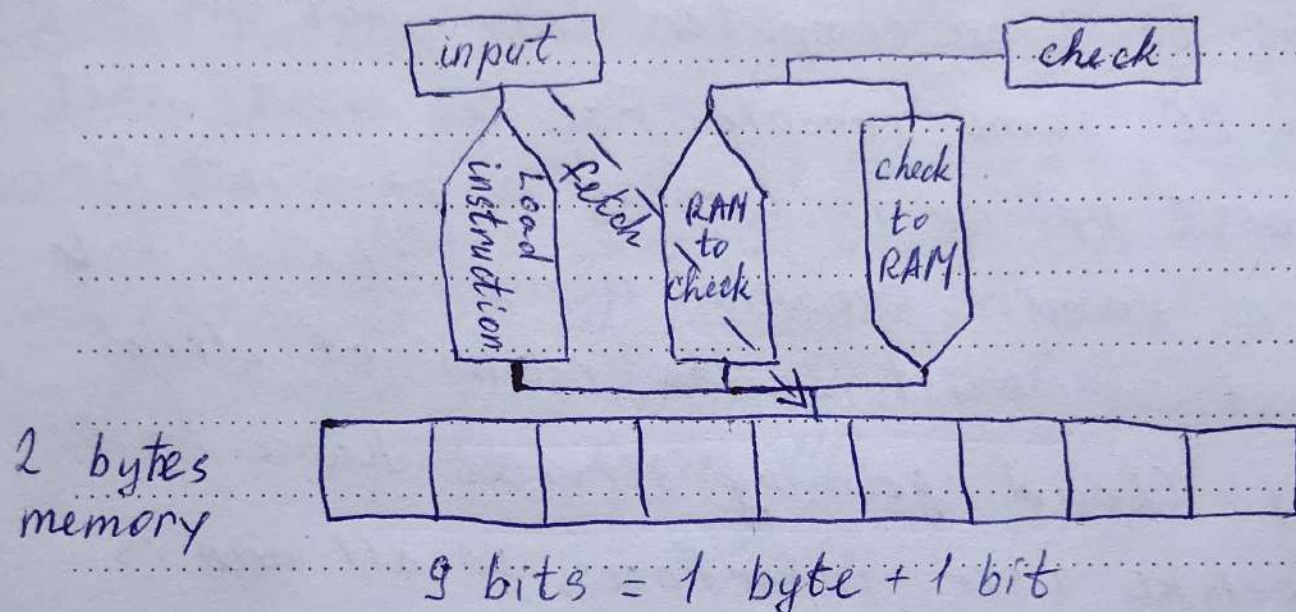 input
check
Load
instruction
fetch
RAM
to
check
check
to
RAM
2 bytes
memory
9 bits = 1 byte + 1 bit